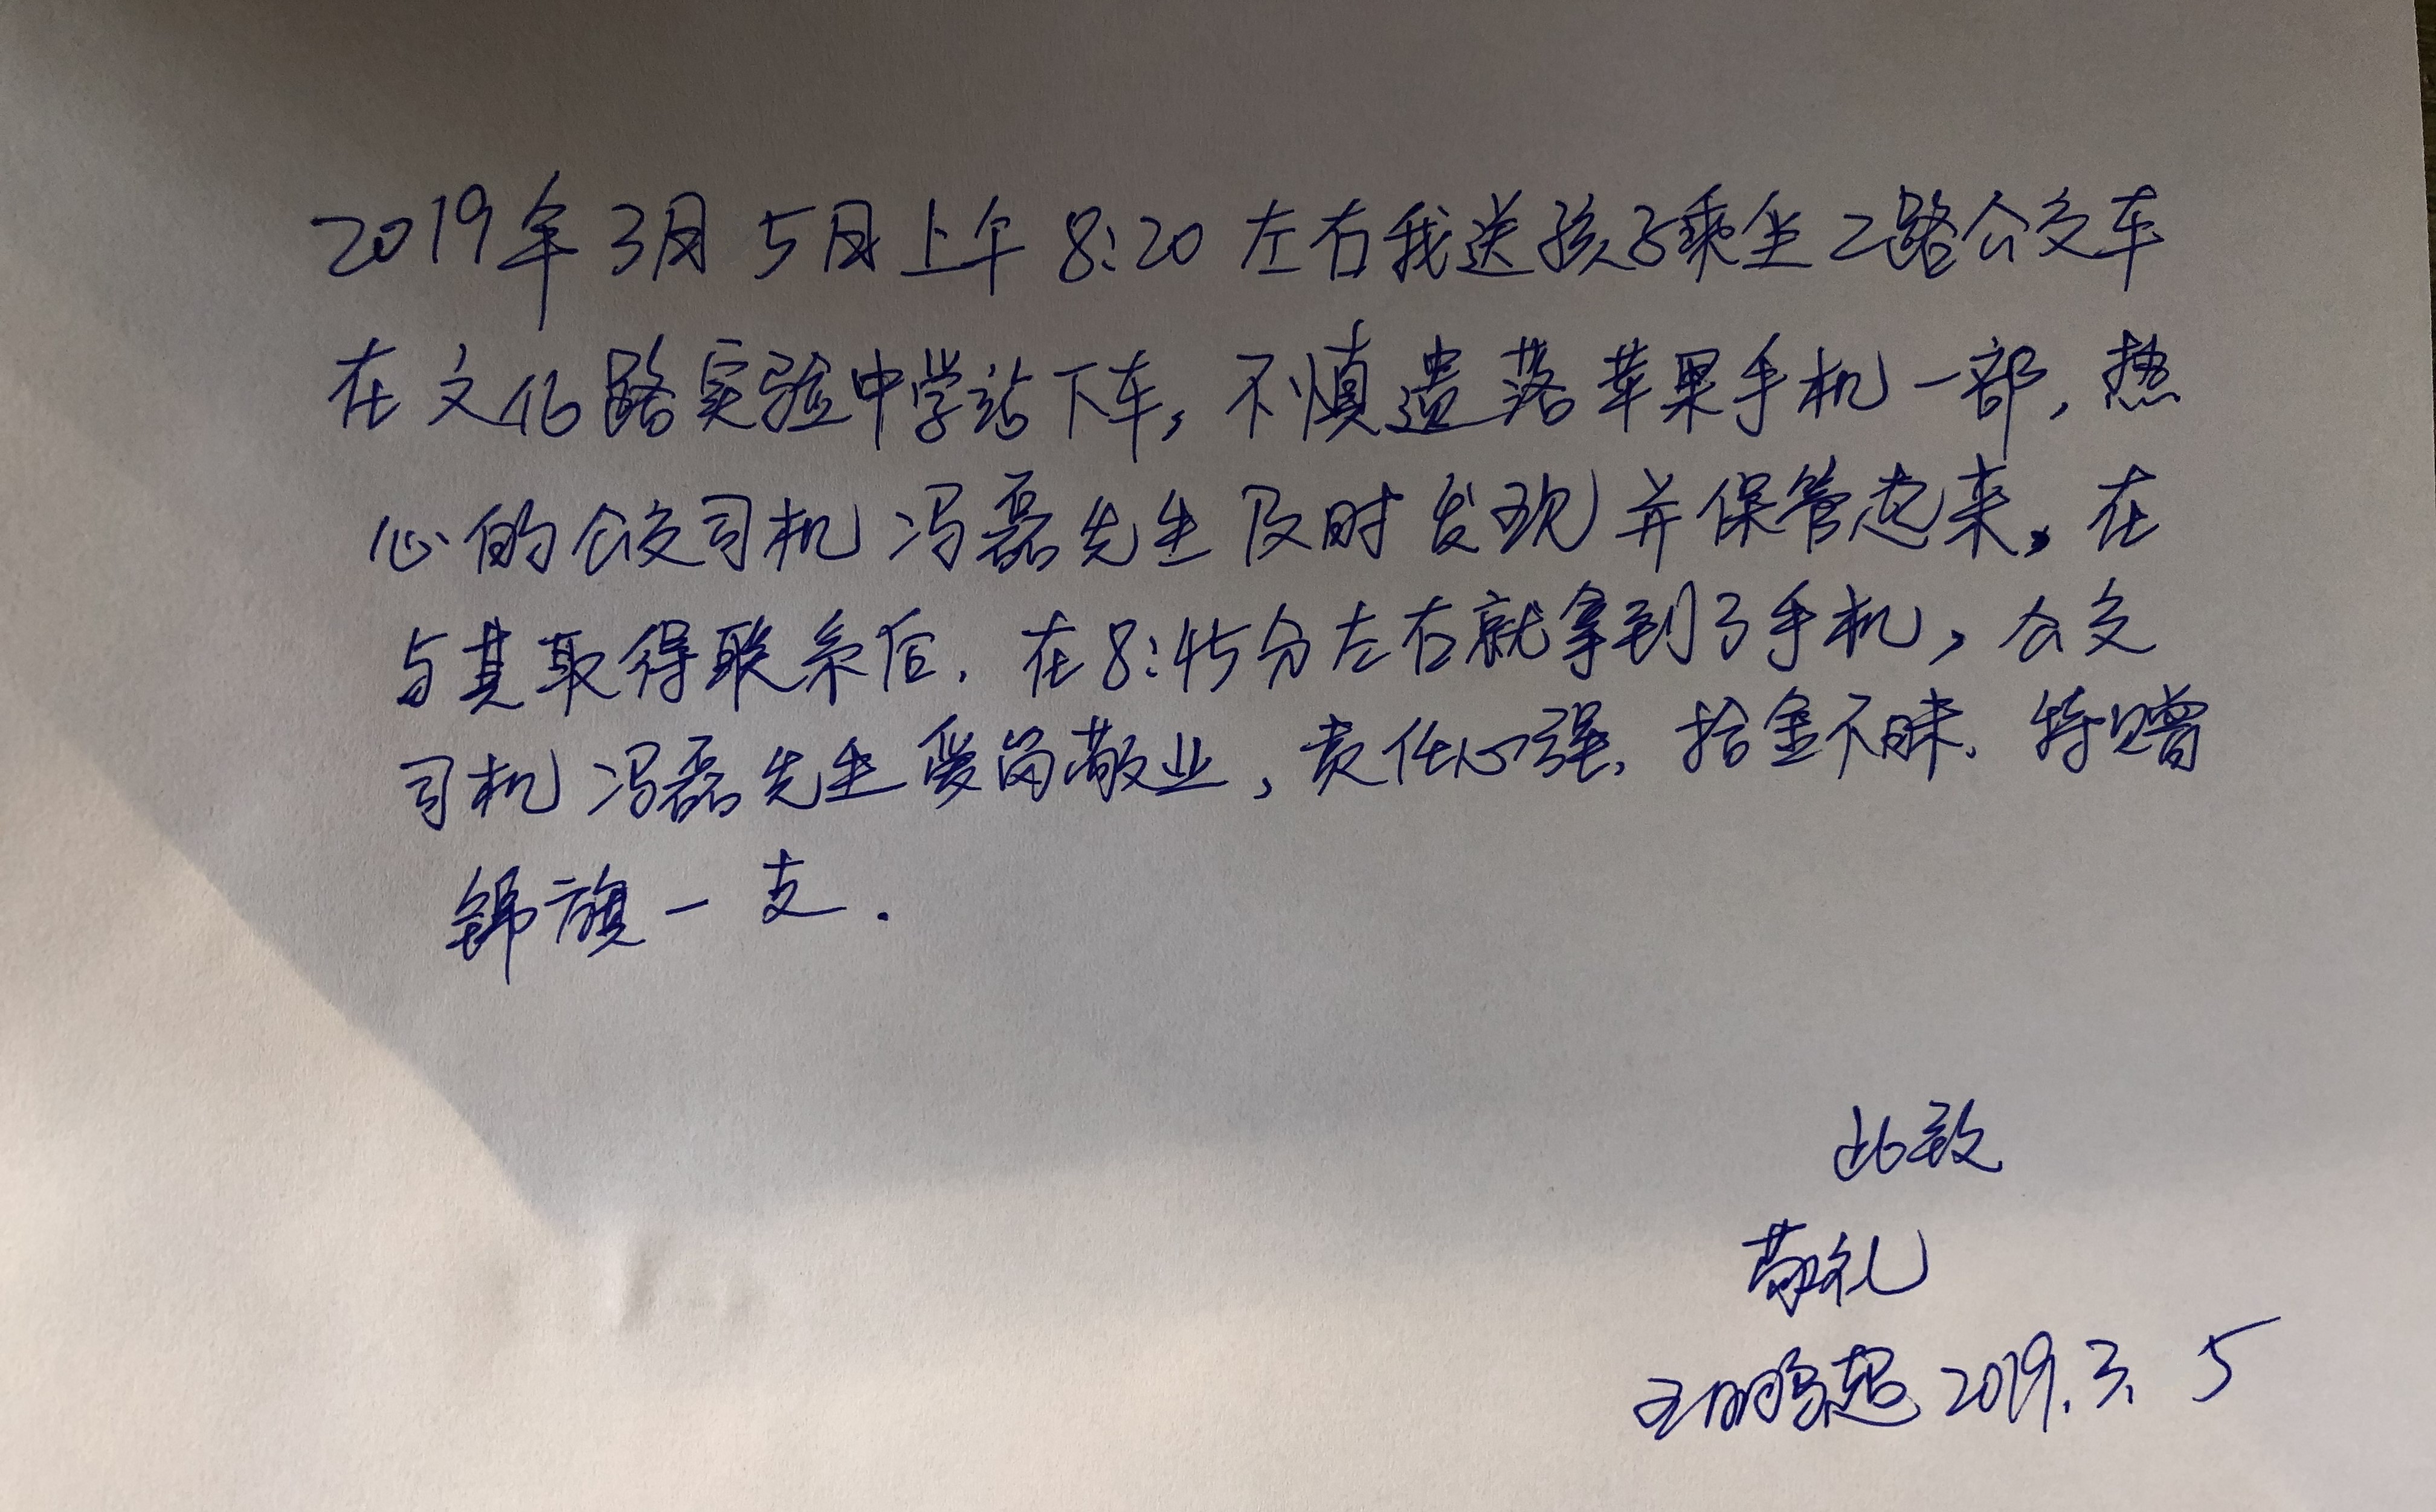 2019年3月5日上午8:20左右我送孩子乘坐2路公交车
在文化路实验中学站下车,不慎遗落苹果手机一部,热
心的公交司机冯磊先生及时发现并保管起来,在
与其取得联系后.在8:45分左右就拿到了手机,公交
司机冯磊先生爱岗敬业,责任心强.拾金不昧.特赠
锦旗一支.
此致
敬礼
王鹏超 2019.3.5